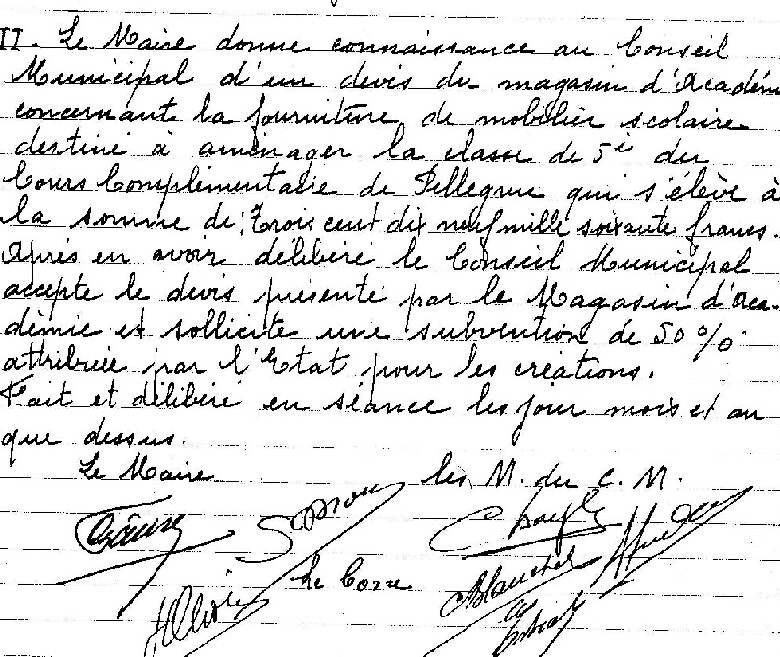 II. Le Maire donne connaissance au Conseil
Municipal d'un devis du magasin d'Académ
concernant la fourniture de mobilier scolaire
destiné à aménager la classe de 5è du
Cours Complémentaire de Pellegrue qui s'élève à
la somme de : trois cent dix neuf mille soixante francs.
Après en avoir délibéré le Conseil Municipal
accepte le devis présenté par le Magasin d'Aca-
démie et sollicite une subvention de 50 %
attribuée par l'Etat pour les créations.
Fait et délibéré en séance les jour mois et an
que dessus.
Le Maire les M. du C. M.
Le Corre Blanchet
Olivier